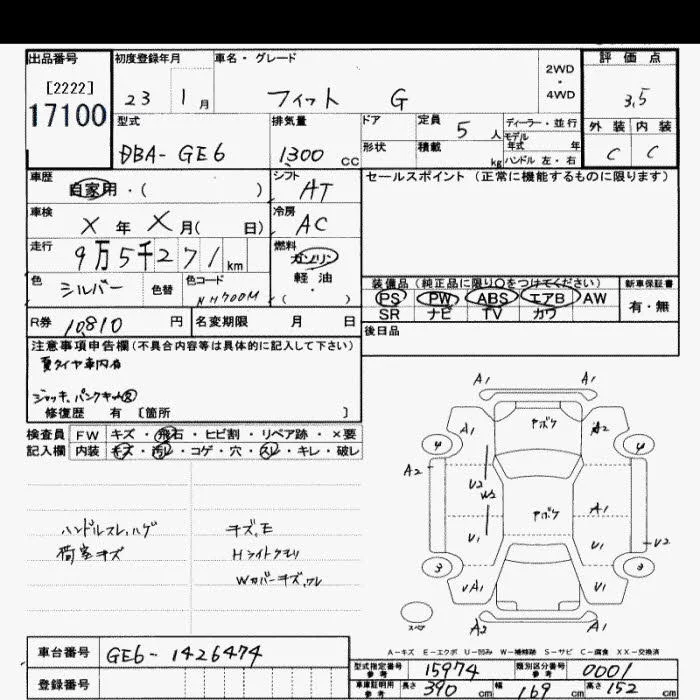 出品番号
[2222]
17100
初度登録年月
23 1 月
車名・グレード
フィット G
2WD
・
4WD
評価点
3.5
外装 内装
C C
型式
DBA-GE6
排気量
1300 cc
ドア
形状
定員 5 人
積載 kg
ディーラー・並行
モデル
年式 年
ハンドル 左・右
車歴
自家用・( )
シフト
AT
セールスポイント (正常に機能するものに限ります)
車検
X 年 X 月( 日)
冷房
AC
走行
9万5千271 km
燃料
ガソリン
軽油
・
( )
色
シルバー
色替
色コード
NH700M
装備品 (純正品に限り〇をつけてください)
新車保証書
PS PW ABS エアB AW
SR ナビ TV カワ
有・無
R券 10,810 円
名変期限 月 日
後日品
注意事項申告欄(不具合内容等は具体的に記入して下さい)
夏タイヤ車内有
ジャッキ、パンクキット
修復歴 有 〔箇所 〕
検査員
記入欄
FW キズ・飛石・ヒビ割・リペア跡・×要
内装 キズ・汚レ・コゲ・穴・スレ・キレ・破レ
ハンドルスレ、ハゲ
荷室キズ
キズ、E
Hライトクモリ
Wカバーキズ、ワレ
A1 A1
A1 ヤボケ A2
4 4
A2
U2
W2
ヤボケ A1
U1 U1 U2
3 3
UA1 U1
スペア
A2 A1
A－キズ E－エクボ U－凹み W－補修跡 S－サビ C－腐食 XX－交換済
車台番号 GE6-1426474
登録番号
型式指定番号
参考
15974
類別区分番号
参考
0001
車庫証明用
参考
長さ 390 cm 幅 169 cm 高さ 152 cm